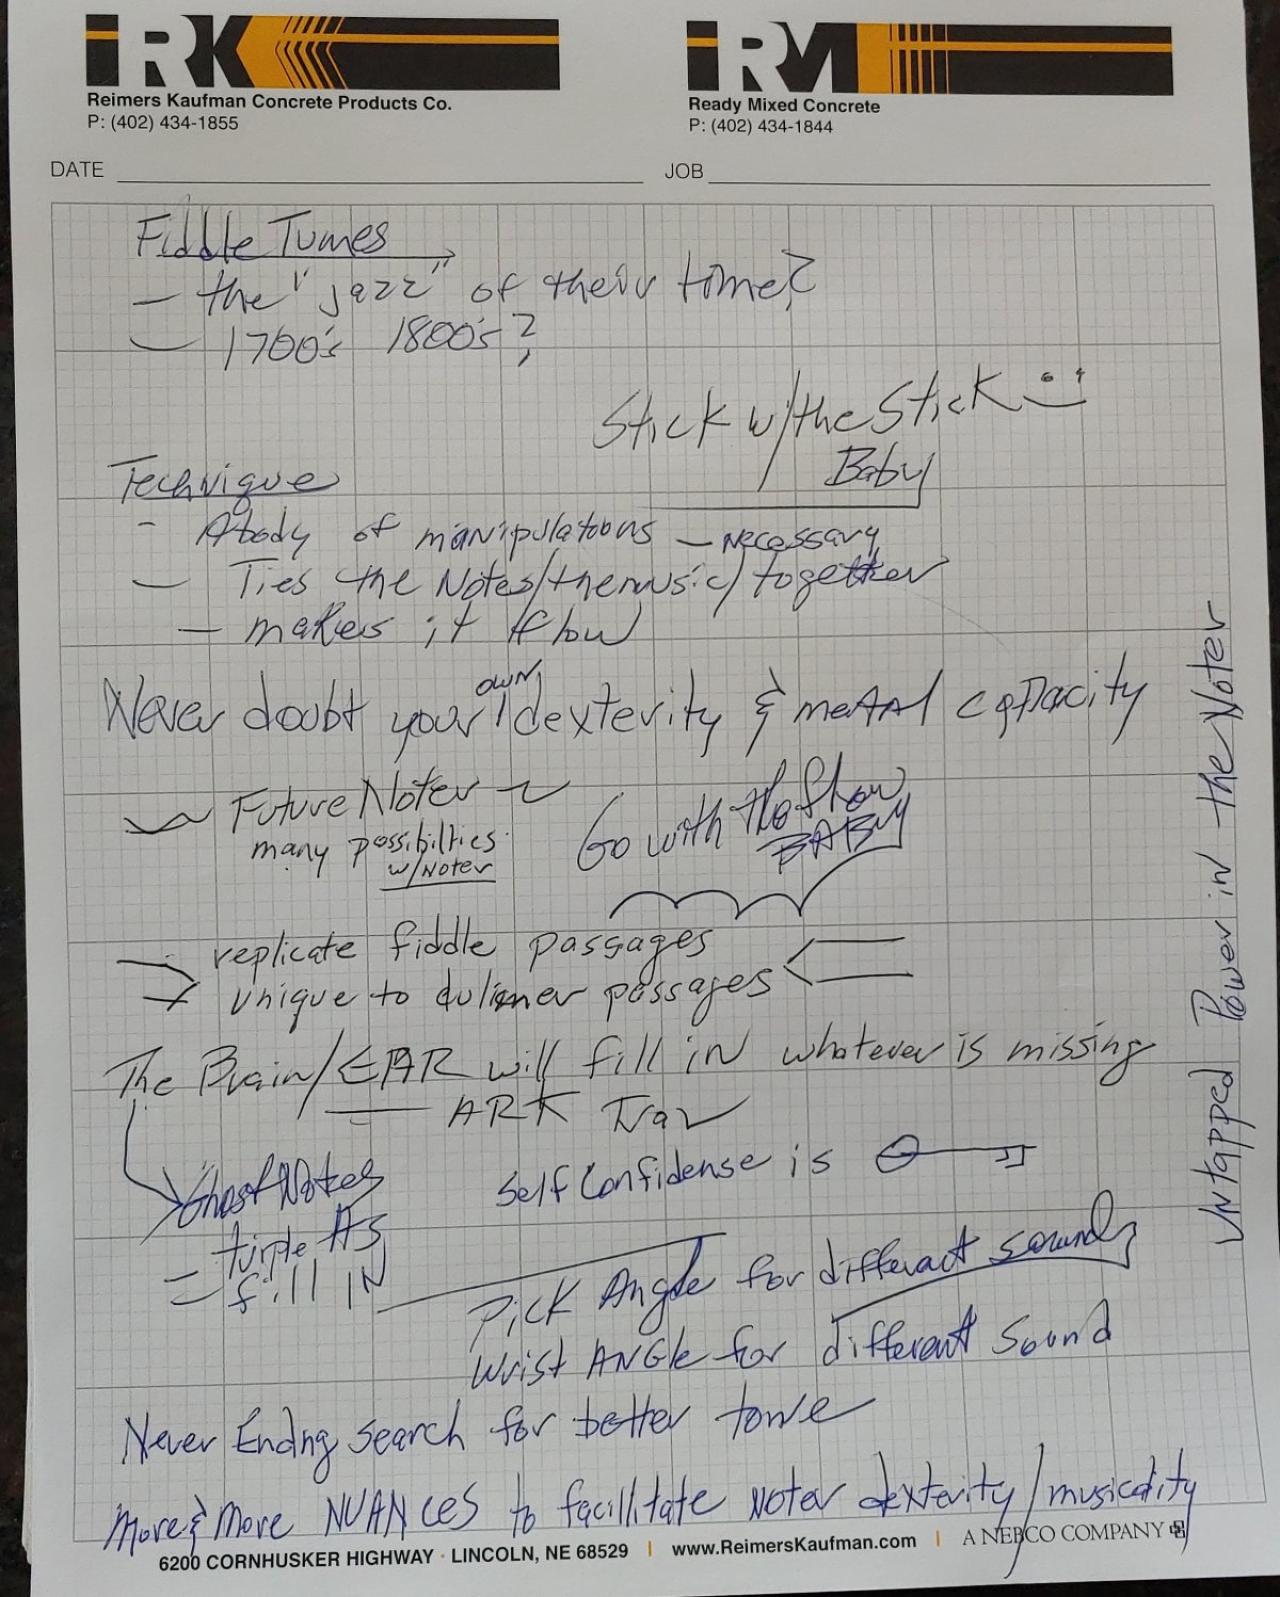 RK
RM
Reimers Kaufman Concrete Products Co.
P: (402) 434-1855
Ready Mixed Concrete
P: (402) 434-1844
DATE
JOB
Fiddle Tunes
– the "jazz" of their time?
– 1700's 1800's?
Stick w/the Stick
Baby
Technique
- A body of manipulations – necessary
– Ties the Notes/the music/together
– makes it flow
Never doubt your own dexterity & mental capacity
Future Noter
many possibilties
w/Noter
Go with the flow
BABY
replicate fiddle passages
unique to dulimer passages
The Brain/EAR will fill in whatever is missing
ARK
Ghost Notes
Self Confidense is
fill IN
Pick Angle for different sound
Wrist ANGle for different sound
Never Ending search for better tone
More & More NUANCES to facillitate Noter dexterity/musicality
Untapped Power in the Noter
6200 CORNHUSKER HIGHWAY · LINCOLN, NE 68529 | www.ReimersKaufman.com | A NEBCO COMPANY